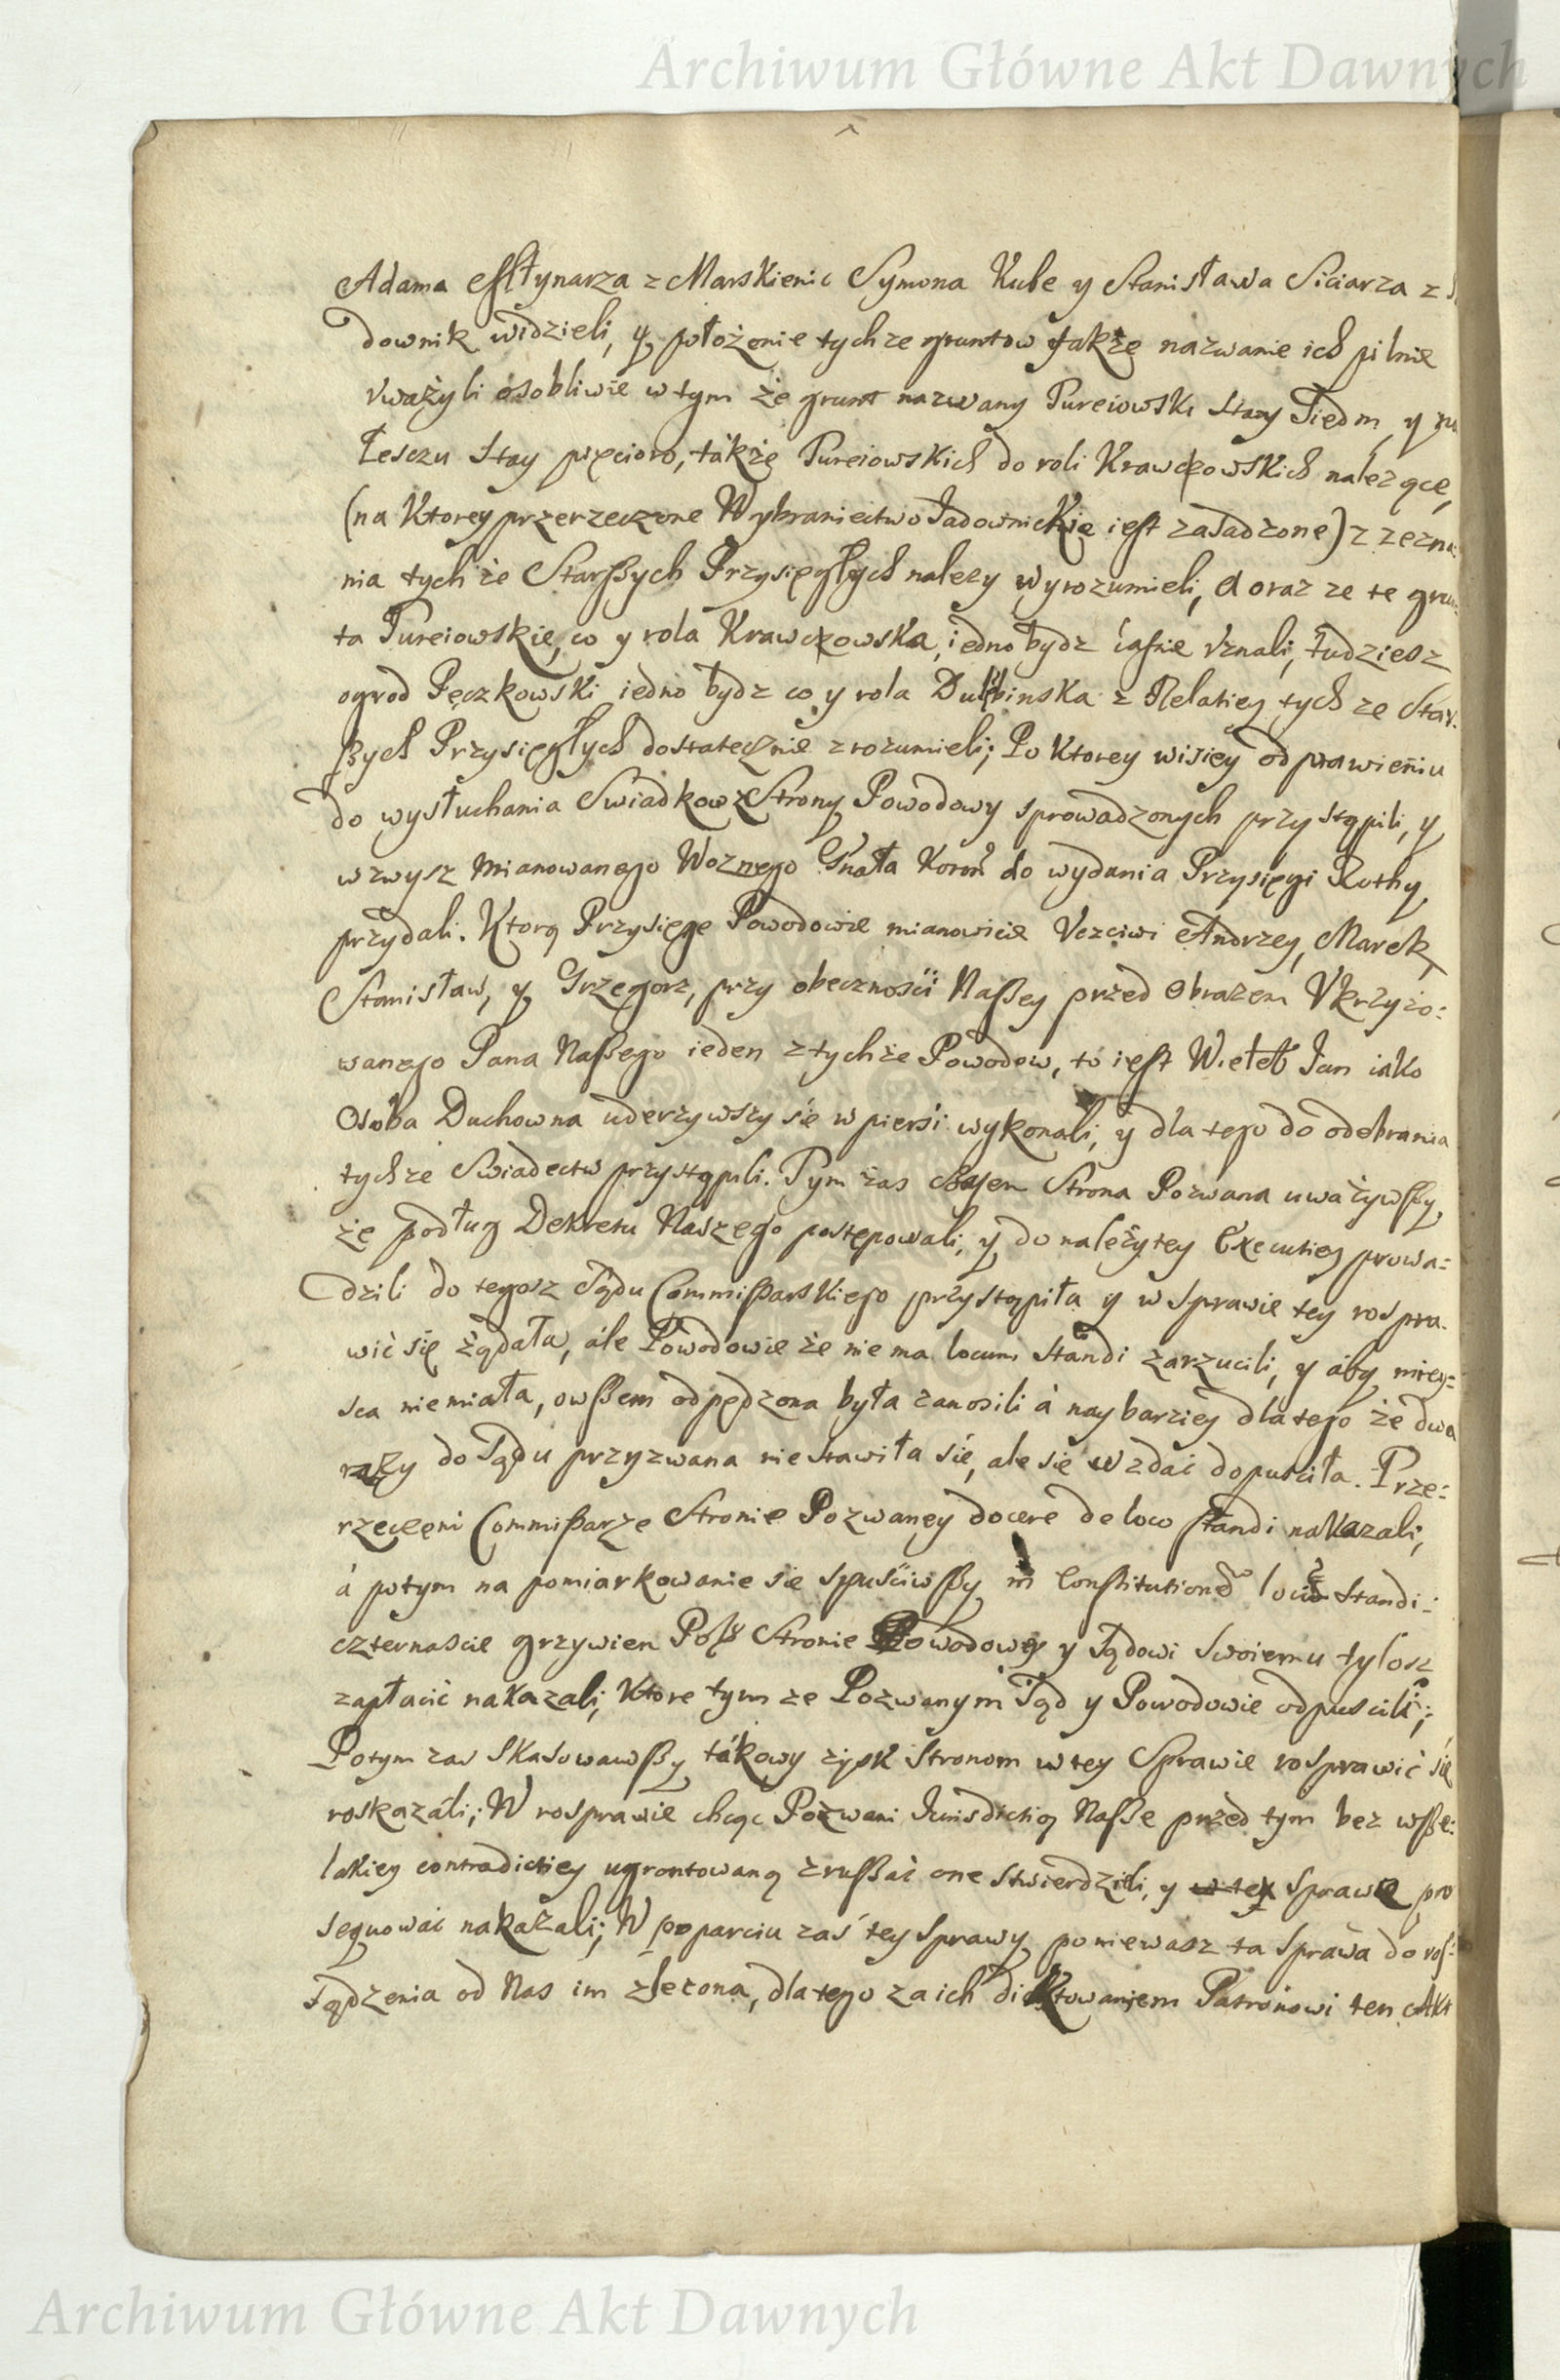 Archiwum Główne Akt Dawnych
Adama Młynarza z Marskienic Symona Kube y Stanisława Siciarza z
downik widzieli, y położenie tychze gruntow także nazwanie ich pilnie
vważyli osobliwie w tym że grunt nazwany Pureiowski stay Siedm, y na
Łesczu stay pięcioro, także Pureiowskich do roli Krawczowskich należące,
(na Ktorey przerzeczone Wybraniectwo Sadownickie iest zasadzone) z zezna:
nia tych że Starßych Przysięgłych nalezy wyrozumieli, a oraz ze te grun:
ta Pureiowskie, co y rola Krawczowska, iedno bydz iaśnie vznali, tudziesz
ogrod Pęczkowski iedno bydz co y rola Dulbinska z Relatiey tych ze Star:
ßych Przysięgłych dostatecznie zrozumieli; Po Ktorey wisiey odprawieniu
do wysłuchania Swiadkow z Strony Powodowy sprowadzonych przystąpili, y
wzwysz mianowanego Woznego Gnała Koroñ do wydania Przysięgi Rothy
przydali. Ktorą Przysięge Powodowie mianowicie Vczciwi Andrzey, Marek,
Stanisław, y Grzegorz, przy obecznosći Naßey przed Obrazem Vkrzyżo:
wanego Pana Naßego ieden z tychże Powodow, to iest Wieleb Jan iako
Osoba Duchowna uderzywszy się w piersi wykonali, y dla tego do odebrania
tychze Swiadectw przystąpili. Tym zas czasem Strona Pozwana uważywßy,
że podług Dekretu Naszego postępowali, y do należytey Executiey prowa:
dzili do tegosz Sądu Commißarskiego przystąpiła y w sprawie tey rospra:
wić się żądała, ále Powodowie że nie ma locum standi zarzucili, y aby miey:
sca nie miała, owßem odpędzona była zanosili á naybarziey dla tego że dwa
razy do Sądu przyzwana nie stawiła się, ale się wzdać dopusciła. Prze:
rzeczeni Commißarze Stronie Pozwaney docere de loco standi nakazali,
á potym na pomiarkowanie się spuśćiwßy in Constitutione loci standi:
czternascie grzywien Pols Stronie Powodowey y Sądowi swoiemu tylosz
zapłacić nakazali, Ktore tym ze Pozwanym Sąd y Powodowie odpuscili;
Potym zas skasowawßy tákowy zysk stronom w tey Sprawie rosprawić się
roskazáli; W rosprawie chcąc Pozwani Jurisdictią Naße przed tym bez wße:
lakiey contradictiey ugrontowaną zrußać one stwierdzili, y w tey sprawie pro
sequować nakazali; W poparciu zaś tey sprawy poniewasz ta sprawa do ros:
sądzenia od Nas im zlecona, dlatego za ich dicktowaniem Patronowi ten Akt
Archiwum Główne Akt Dawnych